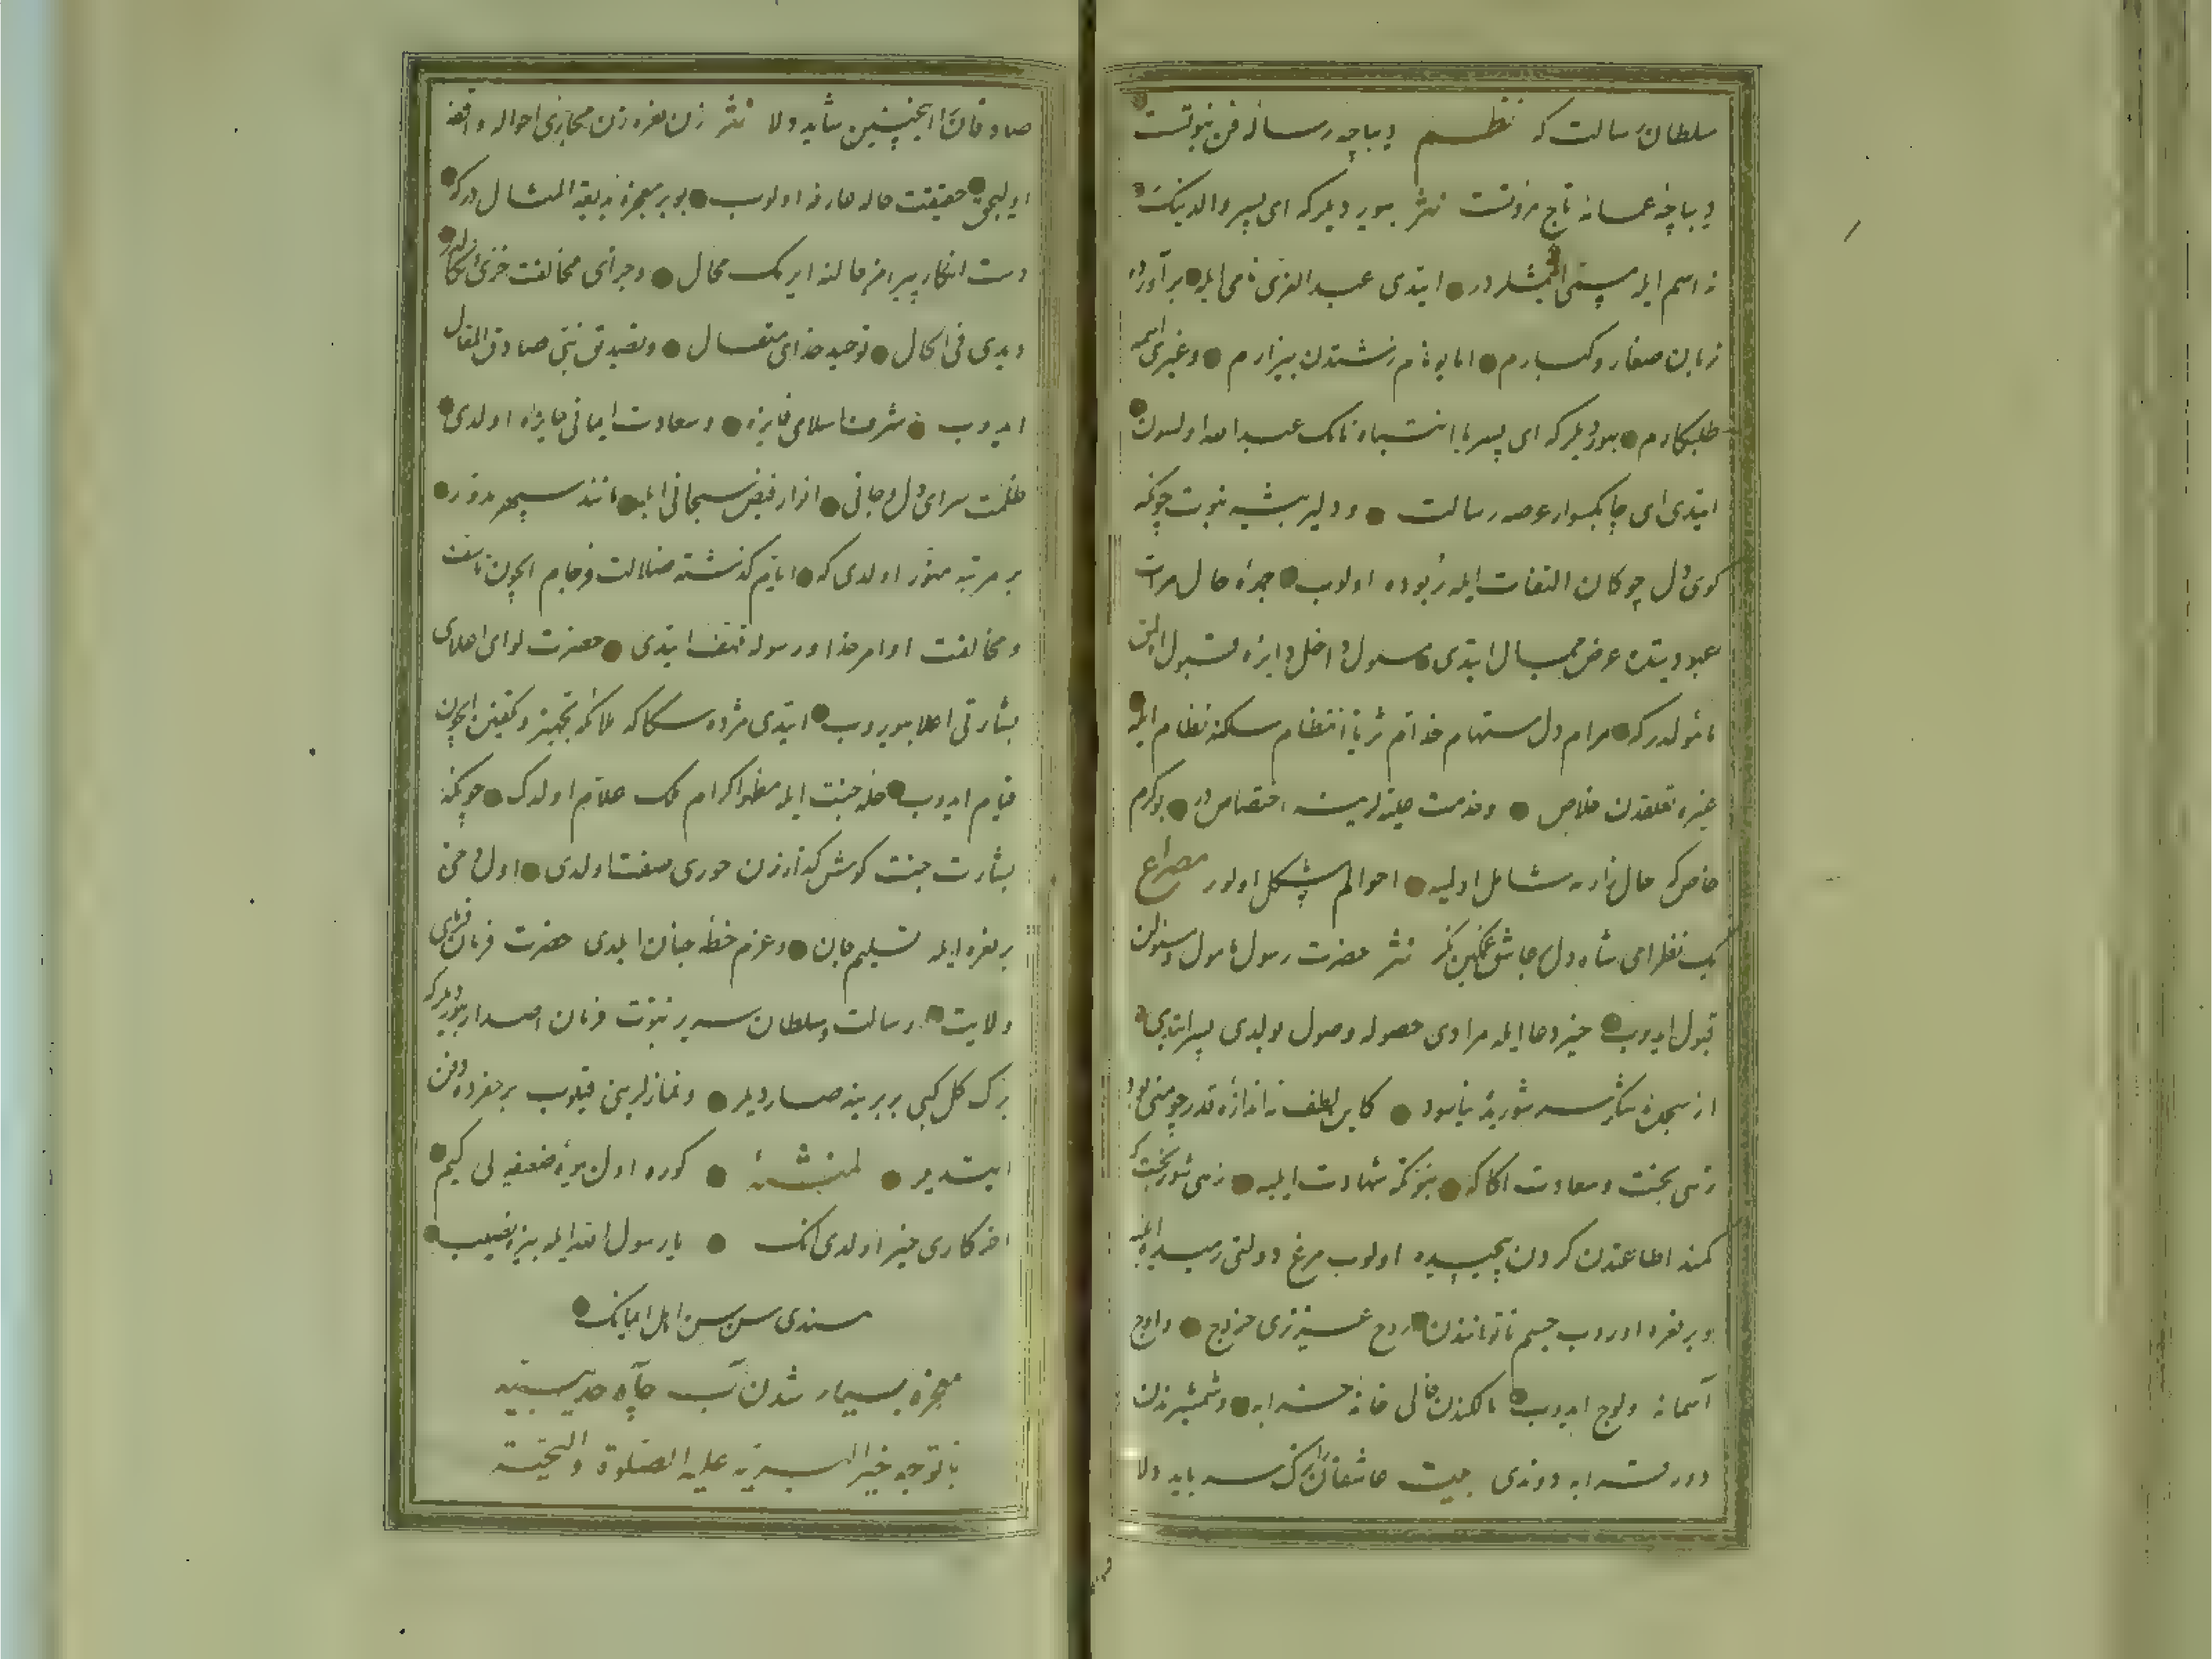 سلطان رسالت که نظم دیباچه رساله فن نبوتست
دیباچه عمامه تاج مروتست نثر بیوردیلر که ای پسر والدینک
نه اسم ایله مسمی ایتمشلردر ایتدی عبد العزی نامی ایله برآورده
زبان صغار و کبارم اما بو نام زشتدن بیزارم وغیری اسمه
طلبکارم بیوردیلر که ای پسر با انتباه نامک عبد الله اولسون
ایتدی ای چابکسوار عرصه رسالت و دلیر بیشه نبوت چونکه
کوی دل چوکان التفات ایله ربوده اولوب چهره حال مرات
عبودیتده عرض جمال ایتدی مسئول داخل دایره قبول
مأمولدرکه مرام دل مستهام خدام ثریا انتظام سلکنه نظام ایله
غیره تعلقدن خلاص و خدمت علیه لرینه اختصاص در بو کرم
خاص که حال زارمه شامل اولیه احوالم مشکل اولور مصراع
یک نظر ای شاه دل جانش غمکین نکر نثر حضرت رسول مأمول و مسئولن
قبول ایدوب خیر دعا ایله مرادی حصوله وصول بولدی پسر ایتدی
از سجده شکر سر شوریده نیاسود کاین لطف نه اندازه قدر چو منی بود
زهی بخت و سعادت اکا که بنوتکه شهادت ایلیه زهی شوربخت که
کمند اطاعتدن کردن پیچیده اولوب مرغ دولتی رمیده ایلیه
و بر نعره اوروب جسم ناتوانندن روح عزیزی خروج و اوج
آسمانه ولوج ایدوب مالکندن خالی خانه خرابه و شمشیرندن
دور قرابه دوندی بیت عاشقانرا ترک سر باید دلا
صادقانرا اینچنین شاید دلا نثر زن نعره زن مجازی احواله واقفه
اولیجق حقیقت حاله عارفه اولوب بو بر معجزه بدیعة المثال درکه
دست انکار پیرامن حالنه ایرمک محال و جرأی مخالفت
دیدی فی الحال توحید خدای متعال و تصدیق نبی صادق المقال
ایدوب شرف اسلامی فایزه و سعادت ایمانی حایزه اولدی
ظلمت سرای دل و جانی انوار فیض سبحانی ایله مانند سپهر مدور
بر مرتبه منور اولدی که ایام کذشته ضلالت فرجام ایچون تأسف
و مخالفت اوامر خدا و رسوله تلهف ایتدی حضرت لوای اعلای
بشارتی اعلا بیوروب ایتدی مژده سکا که ملائکه تجهیز و تکفین ایچون
قیام ایدوب حله جنت ایله مظهر اکرام ملک علام اولدک چونکه
بشارت جنت کوش کذار زن حوری صفت اولدی اول دخی
بر نعره ایله تسلیم جان و عزم خطه جنان ایلدی حضرت فرمان فرمای
ولایت رسالت و سلطان سریر نبوت فرمان اصدار بیوردیلر که
برک کل کبی بربرینه صاردیلر و نمازلرینی قیلوب بر حفره ده دفن
ایتدیلر لمنشئه کوره اول بیوه ضعیفه لی کیم
آخر کاری خیر اولدی انک یا رسول الله ایله بیزه نصیب
سندی سن سن اهل ایمانک
معجزه بسیار شدن آب چاه حدیبیه
با توجه خیر البریه علیه الصلوة والتحیة